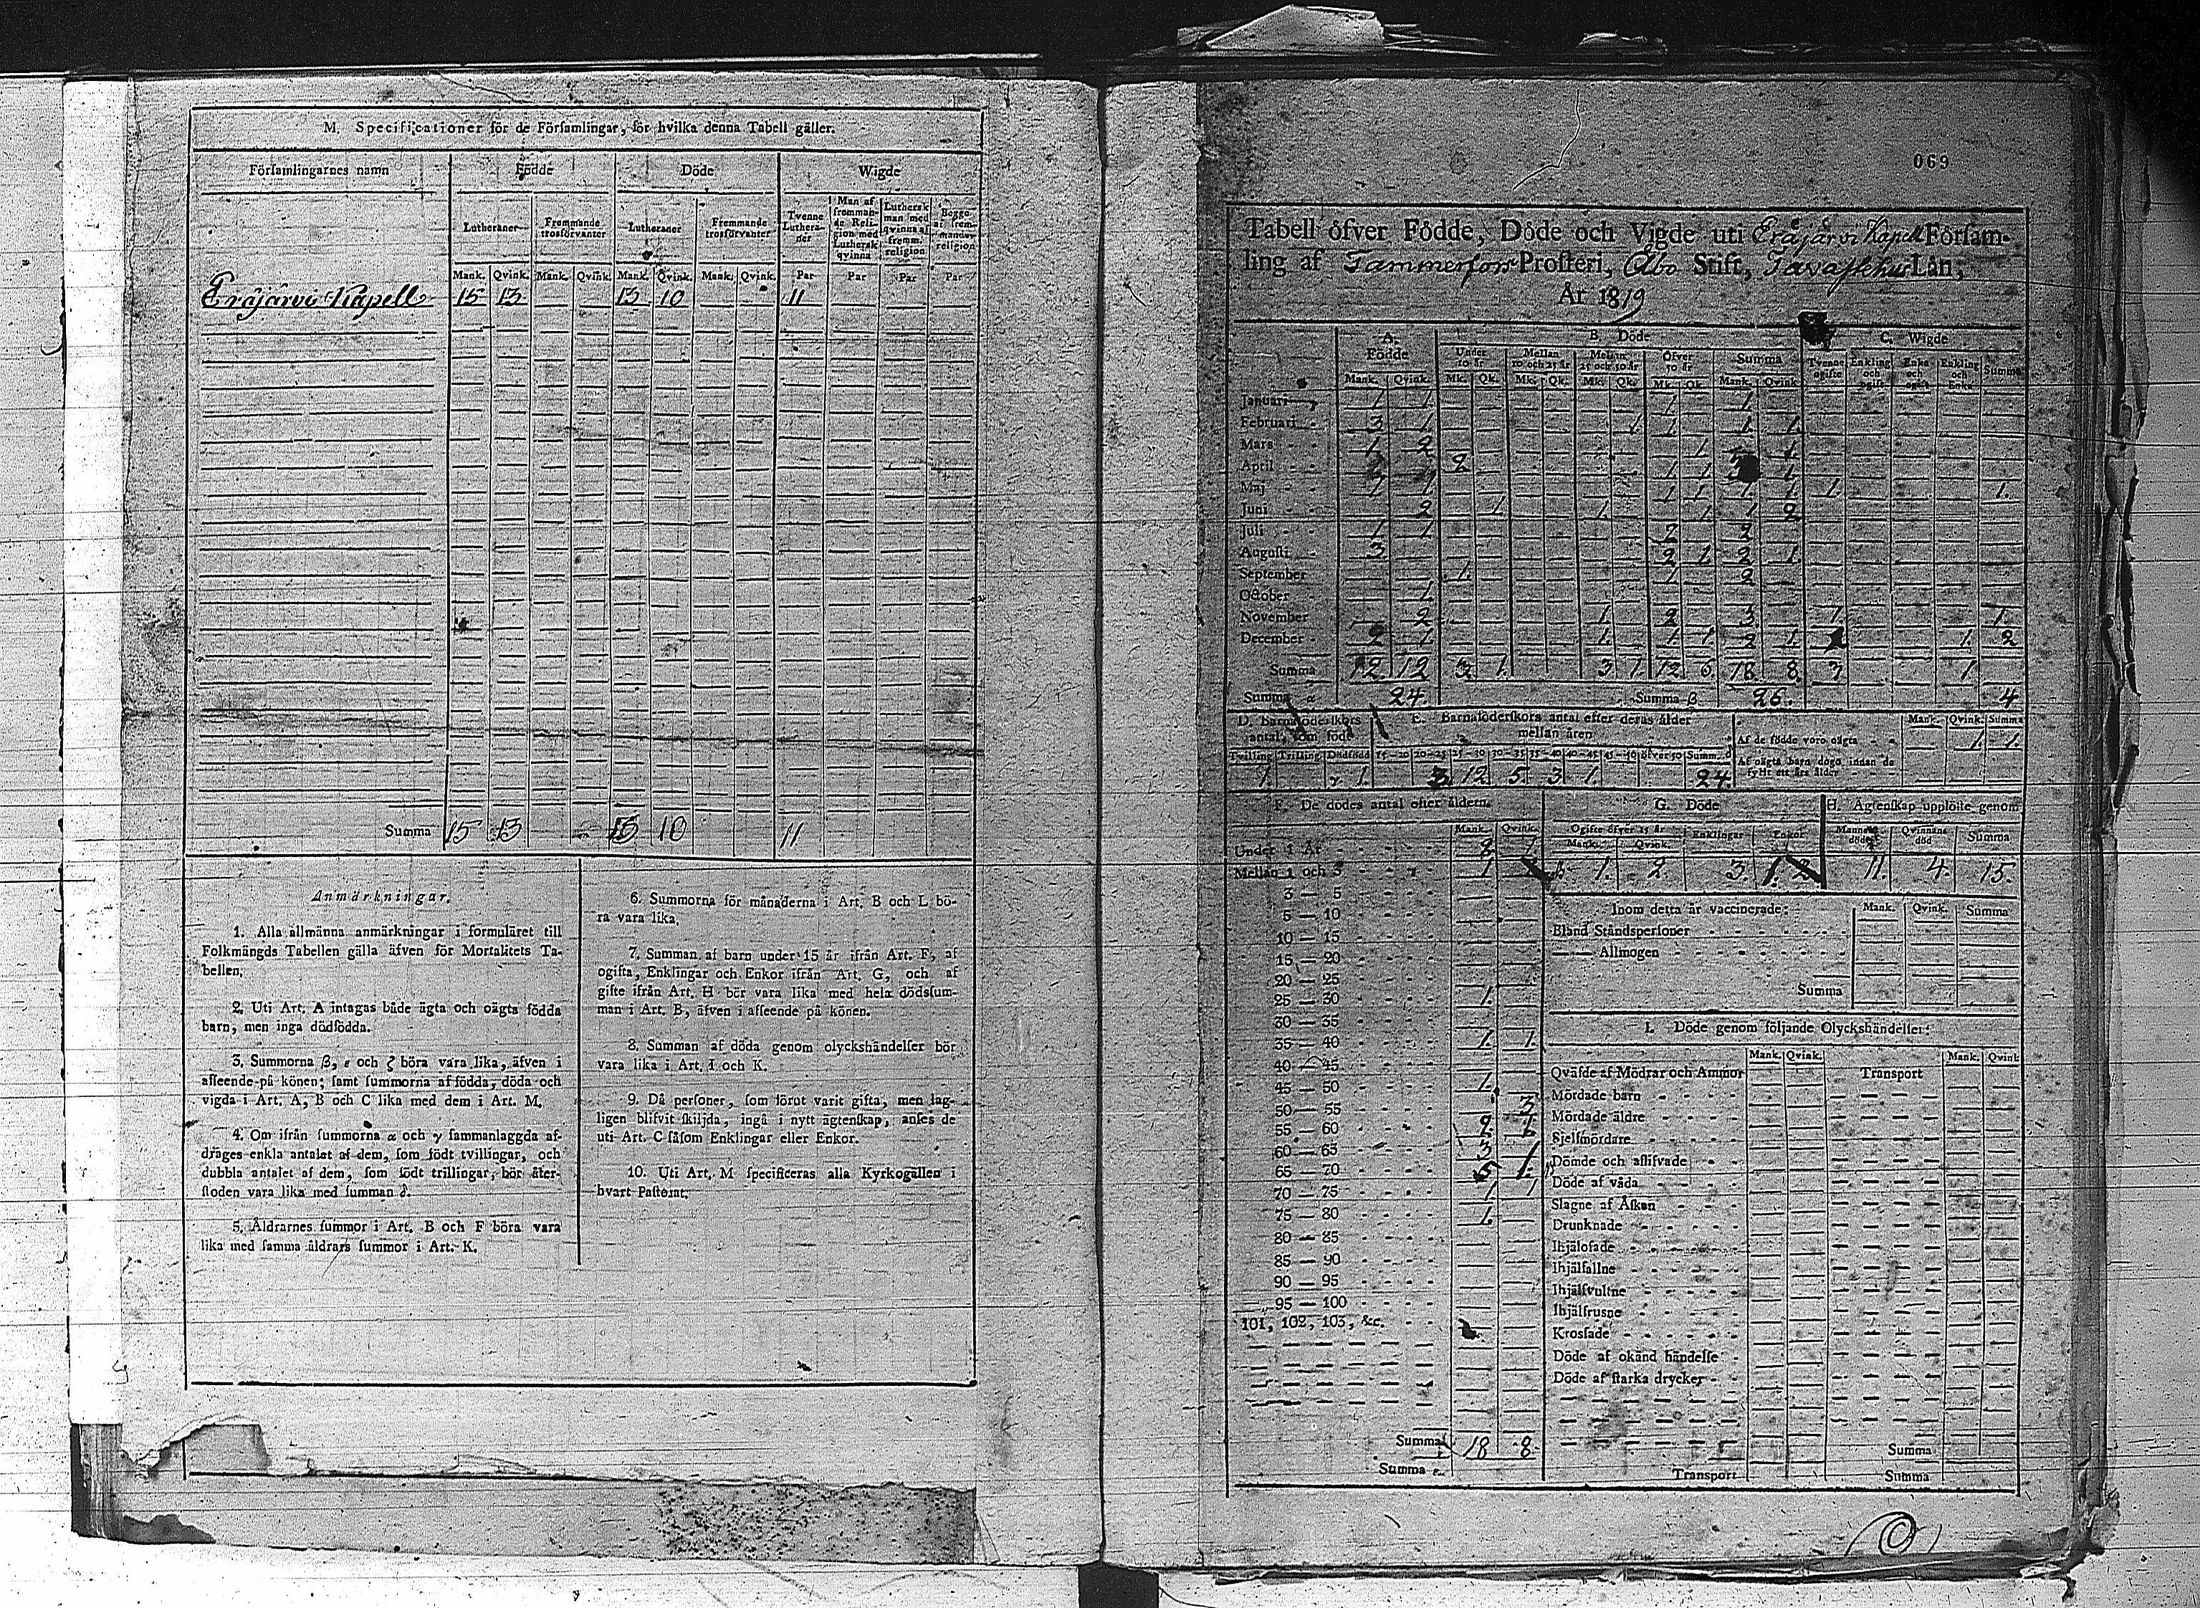 M. Specificationer för de Församlingar, för hvilka denna Tabell gäller.
Församlingarnes namn Födde Döde Wigde
Lutheraner Fremmande trosförvanter Lutheraner Fremmande trosförvanter Tvenne Lutheraner Man af fremmande Religion med Luthersk qvinna Luthersk man med qvinna af fremm. religion Begge af fremmande religion
Mank. Qvink. Mank. Qvink. Mank. Qvink. Mank. Qvink. Par Par Par Par
Eräjärvi Kapell 15 13 13 10 11
Summa 15 13 10 11
Anmärkningar.
1. Alla allmänna anmärkningar i formuläret till
Folkmängds Tabellen gälla äfven för Mortalitets Ta-
bellen.
2. Uti Art. A intagas både ägta och oägta födda
barn, men inga dödfödda.
3. Summorna β, ε och ζ böra vara lika, äfven i
afseende på könen; samt summorna af födda, döda och
vigda i Art. A, B och C lika med dem i Art. M.
4. Om ifrån summorna α och γ sammanlaggda af-
drages enkla antalet af dem, som födt tvillingar, och
dubbla antalet af dem, som födt trillingar, bör åter-
stoden vara lika med summan δ.
5. Åldrarnes summor i Art. B och F böra vara
lika med samma åldrars summor i Art. K.
6. Summorna för månaderna i Art. B och L bö-
ra vara lika.
7. Summan af barn under 15 år ifrån Art. F, af
ogifta, Enklingar och Enkor ifrån Art. G, och af
gifte ifrån Art. H bör vara lika med hela dödssum-
man i Art. B, äfven i afseende på könen.
8. Summan af döda genom olyckshändelser bör
vara lika i Art. I och K.
9. Då personer, som förut varit gifta, men lag-
ligen blifvit skiljda, ingå i nytt ägtenskap, anses de
uti Art. C såsom Enklingar eller Enkor.
10. Uti Art. M specificeras alla Kyrkogällen i
hvart Pastorat.
069
Tabell öfver Födde, Döde och Vigde uti Eräjärvi Kapell Församling
af Tammerfors Prosteri, Åbo Stift, Tavastehus Län,
År 1819
A. Födde B. Döde C. Wigde
Under 10 år Mellan 10 och 25 år Mellan 25 och 50 år Öfver 50 år Summa Tvenne ogifte Enkling och ogift Enka och ogift Enkling och Enka Summa
Mank. Qvink. Mk. Qk. Mk. Qk. Mk. Qk. Mk. Qk. Mank. Qvink
Januari 1 1 1 1
Februari 3 1 1 1 1 1
Mars 1 2 1 1
April 2 1 1 1
Maj 1 1 1 1 1 1 1. 1.
Juni 2 1 1 1 1 2
Juli 1 1 2 2
Augusti 3 2 1 2 1
September 1. 1 2
October 1
November 2 1. 2 3 1. 1.
December 2 1 1. 1 1 2 1 1. 2
Summa 12 12 3 1. 3 1. 12 6 18 8 3 1
Summa α 24. Summa β 26. 4
D. Barnaföderskors antal, som födt
E. Barnaföderskors antal efter deras ålder mellan åren
Mank. Qvink. Summa
Af de födde voro oägta 1. 1.
Af oägta barn dogo innan de fyllt ett års ålder
Tvilling Trilling Dödfödda 15—20 20—25 25—30 30—35 35—40 40—45 45—50 öfver 50 Summ. δ
1. 1. 3 12 5 3 1 24.
F. De dödes antal efter åldern. G. Döde H. Ägtenskap upplöste genom
Mank. Qvink. Ogifte öfver 15 år Enklingar Enkor Mannens död Qvinnans död Summa
Mank. Qvink.
1. 2. 3. 11. 4. 15.
Under 1 År 2 1.
Mellan 1 och 3 1
3 — 5
5 — 10
10 — 15
15 — 20
20 — 25
25 — 30 1.
30 — 35
35 — 40 1. 1.
40 — 45
45 — 50 1.
50 — 55 3
55 — 60 2
60 — 65 3
65 — 70 5 1.
70 — 75 1
75 — 80 1.
80 — 85
85 — 90
90 — 95
95 — 100
101, 102, 103, &c.
Summa 18 8.
Summa ε
Inom detta år vaccinerade: Mank. Qvink. Summa
Bland Ståndspersoner
Allmogen
Summa
I. Döde genom följande Olyckshändelser:
Mank. Qvink. Mank. Qvink
Qväfde af Mödrar och Ammor Transport
Mördade barn
Mördade äldre
Sjelfmördare
Dömde och aflifvade
Döde af våda
Slagne af Åskan
Drunknade
Ihjälosade
Ihjälfallne
Ihjälsvultne
Ihjälfrusne
Krossade
Döde af okänd händelse
Döde af starka drycker
Summa
Transport Summa